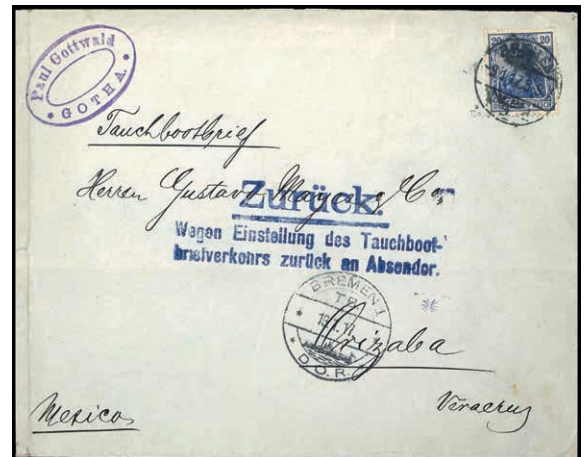 Paul Gottwald
GOTHA.
20 20
Tauchbootbrief
Herren Gustavo Mayer & Co
Zurück.
Wegen Einstellung des Tauchboot-
briefverkehrs zurück an Absender.
BREMEN 1
T.B.
D.O.R.
Orizaba
Veracruz
Mexico